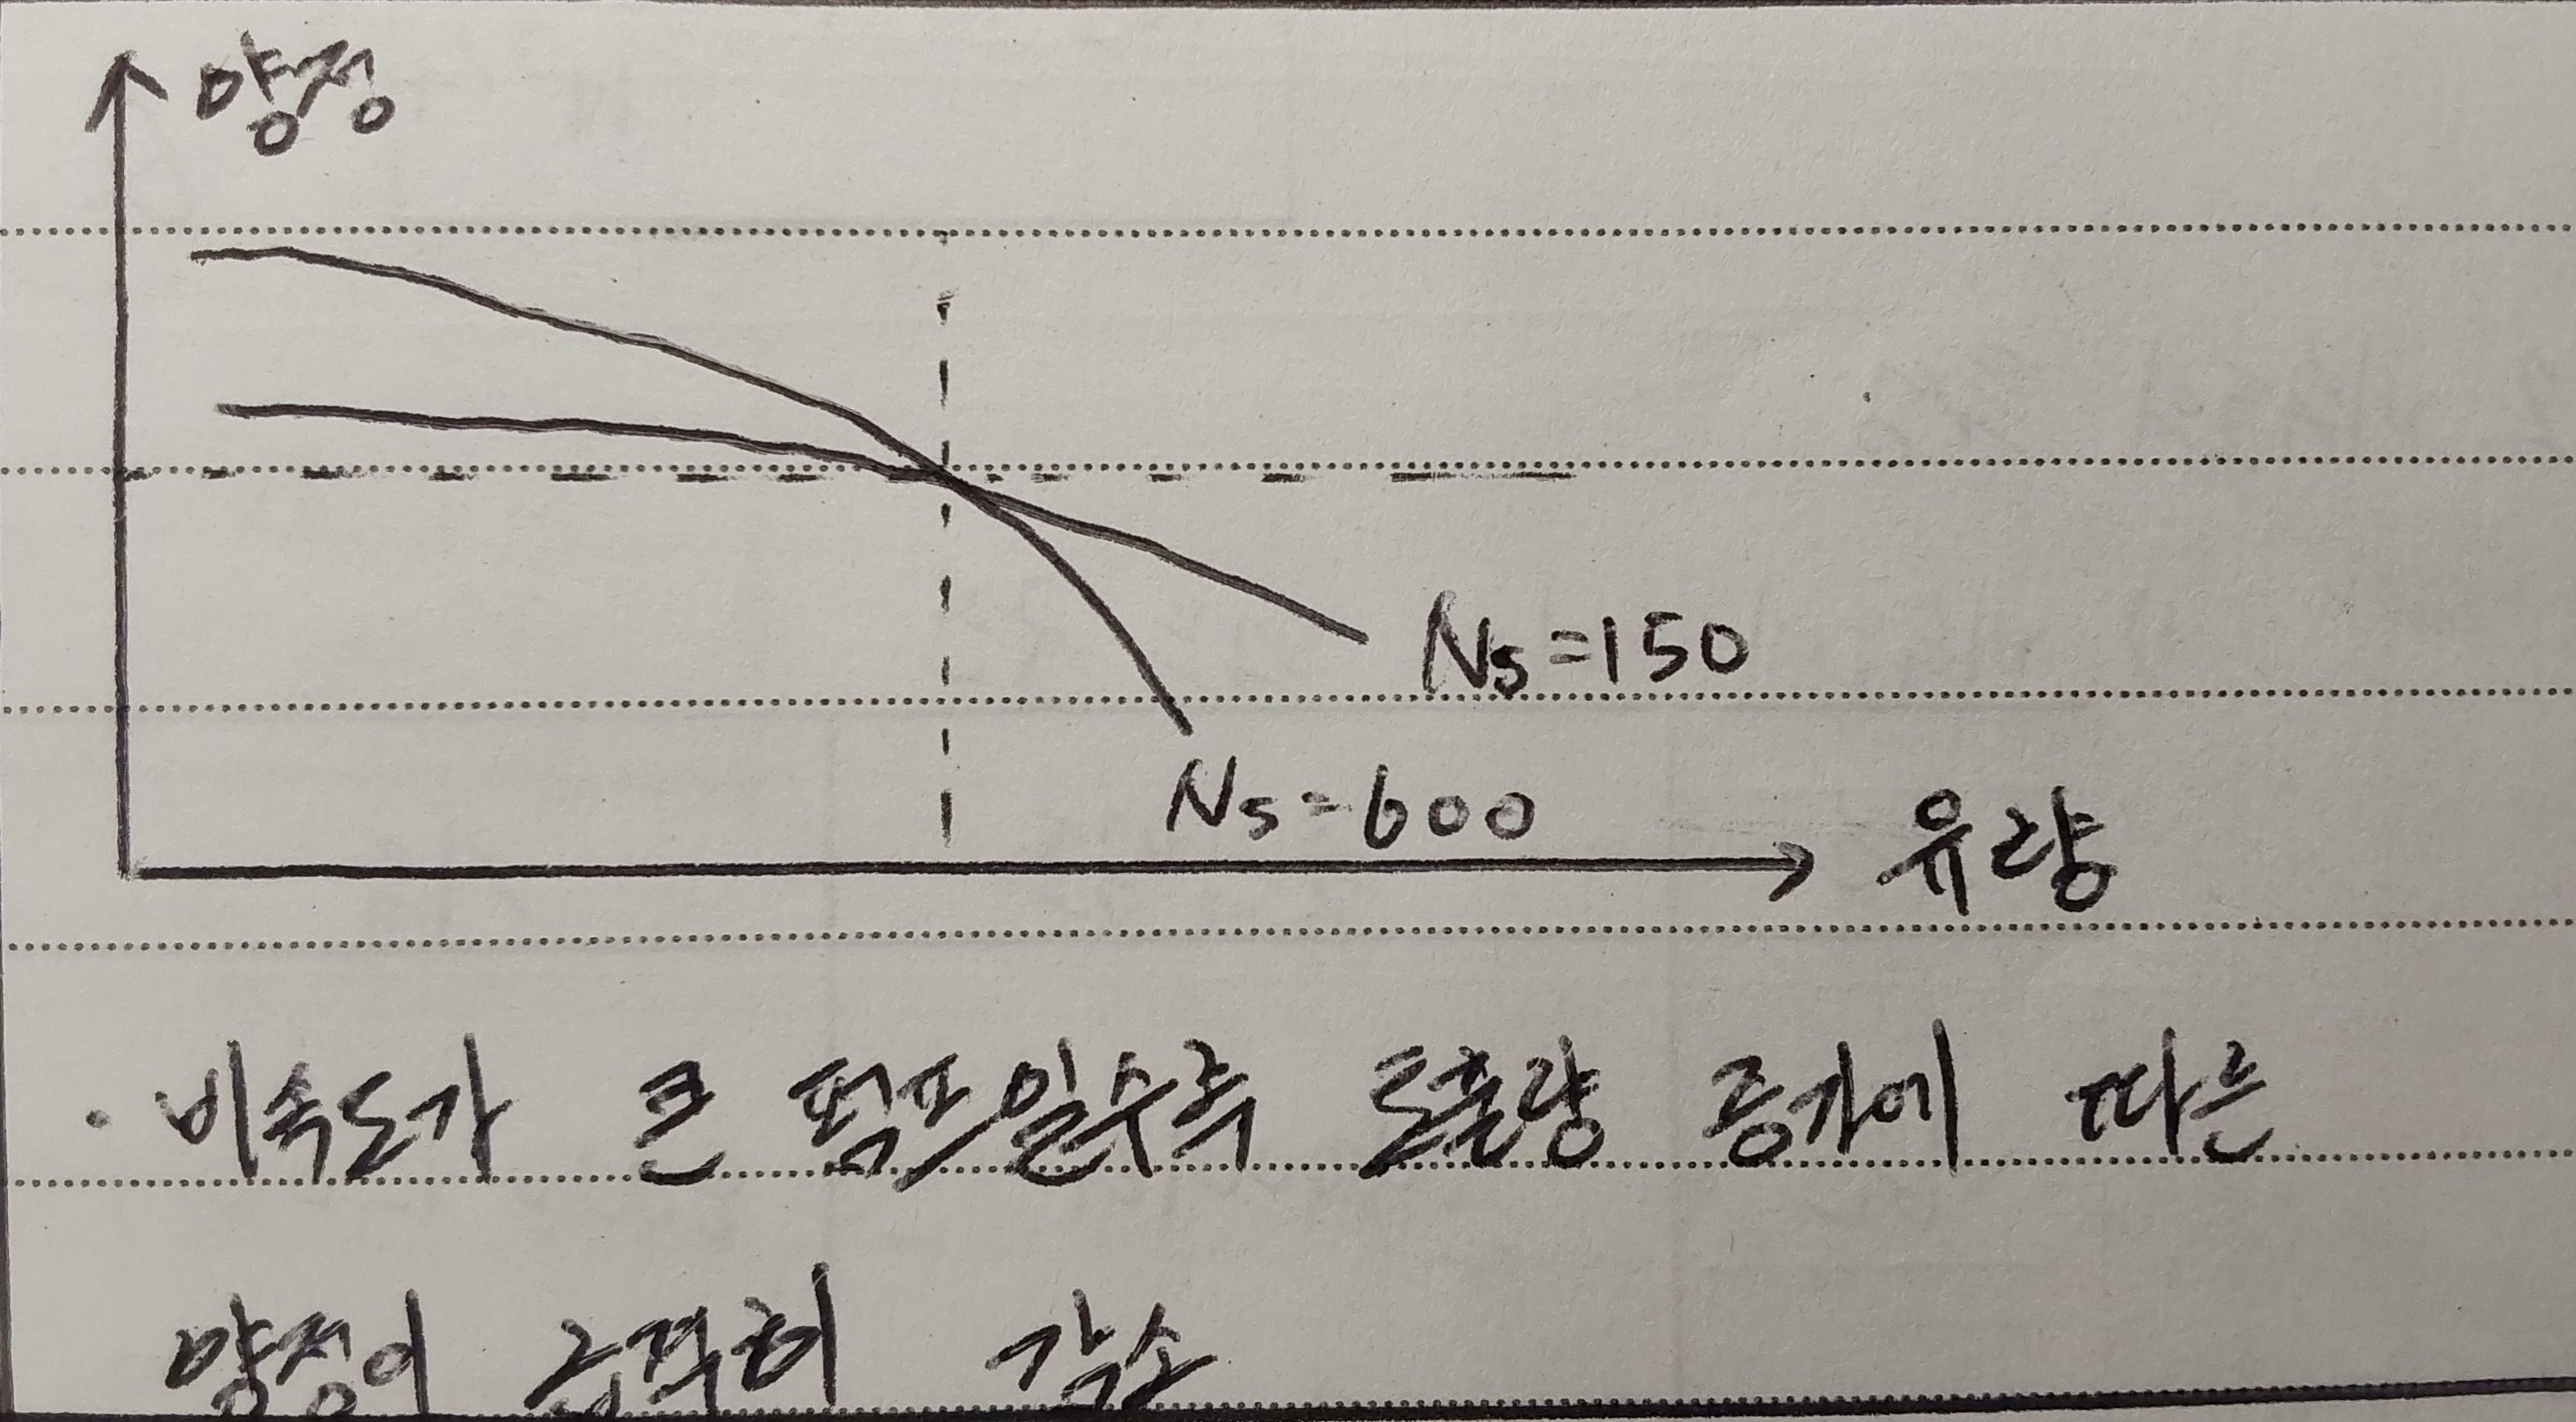 양정
Ns=150
Ns=600
유량
· 비속도가 큰 펌프일수록 토출량 증가에 따른
양정이 급격히 감소